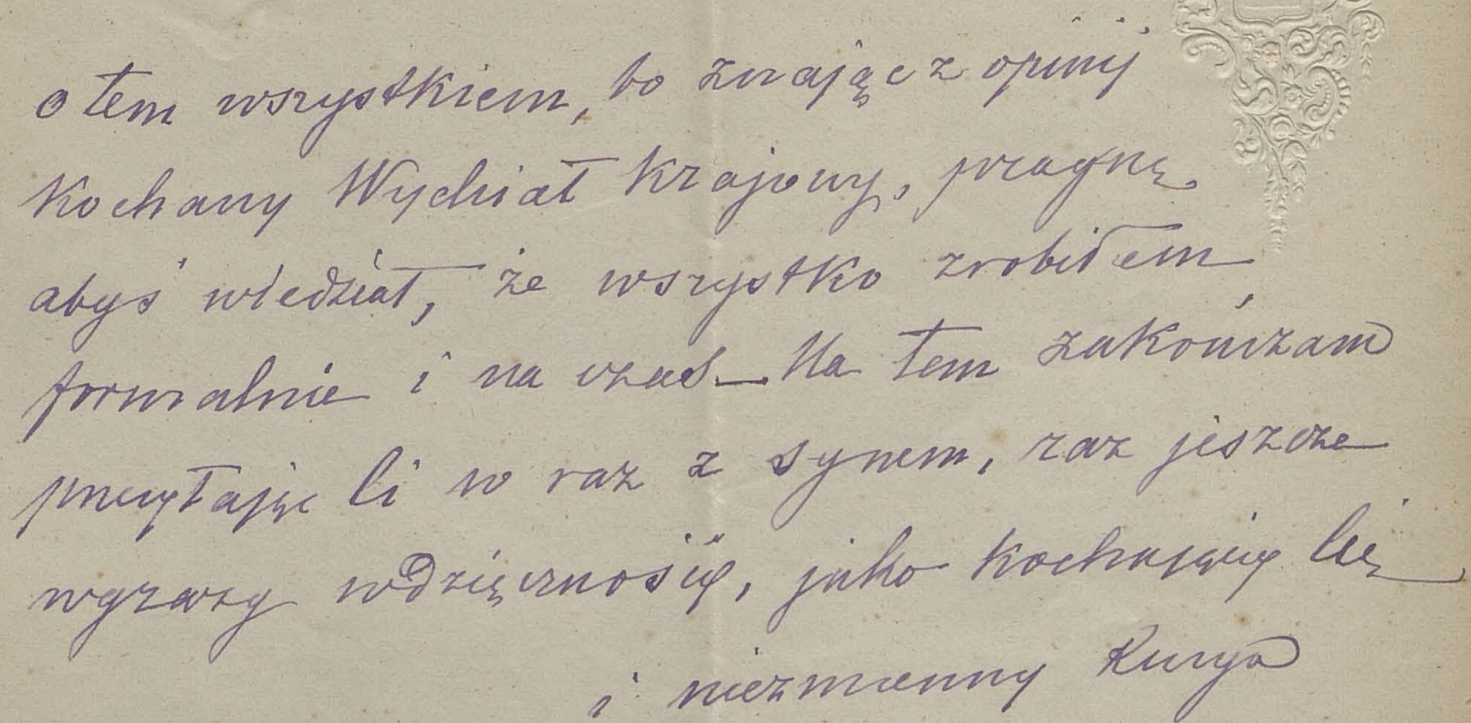 o tem wszystkiem, bo znając z opinij
kochany Wydział Krajowy, pragnę
abyś wiedział, że wszystko zrobiłem
formalnie i na czas – Na tem zakończam
przesyłając Ci w raz z synem, raz jeszcze
wyrazy wdzięczności, jako kochający Cię
i niezmienny